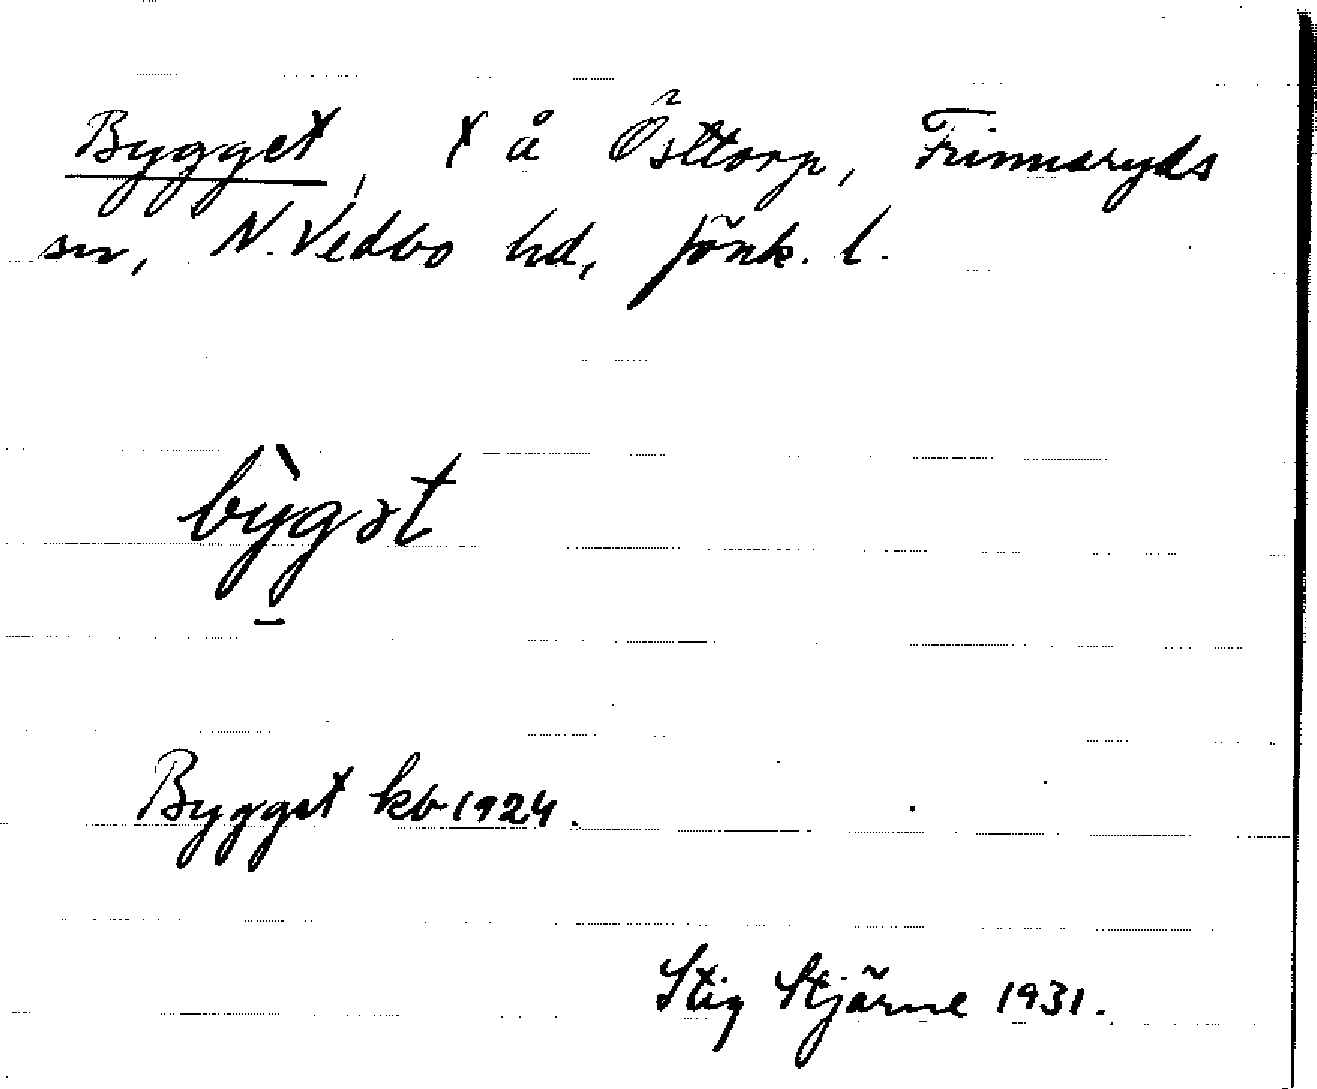 Bygget, x å Östtorp, Frinnaryds
sn, N. Vedbo hd, Jönk. l.
bỳgət
Bygget kb 1924.
Stig Stjärne 1931.